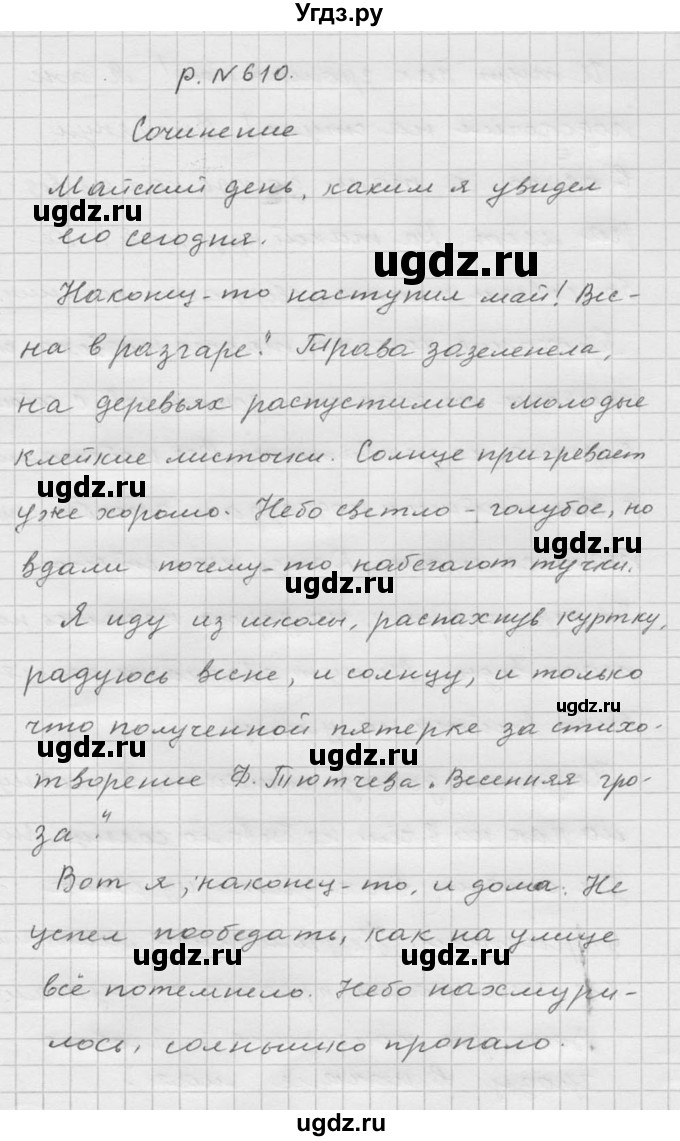 Угдз.ру
р. №610.
Сочинение
Майский день, каким я увидел
ugdz.ru
его сегодня.
ugdz.ru
Наконец-то наступил май! Вес-
на в разгаре." Трава зазеленела,
на деревьях распустились молодые
клейкие листочки. Солнце пригревает
ugdz.ru
уже хорошо. Небо светло-голубое, но
ugdz.ru
вдали почему-то набегают тучки.
ugdz.ru
Я иду из школы, распахнув куртку,
радуюсь весне, и солнцу, и только
ugdz.ru
что полученной пятерке за стихо-
ugdz.ru
ugdz.ru
творение Ф. Тютчева "Весенняя гро-
за."
Вот я, наконец-то, и дома. Не
успел пообедать, как на улице
ugdz.ru
ugdz.ru
всё потемнело. Небо нахмури-
лось, солнышко пропало.
ugdz.ru